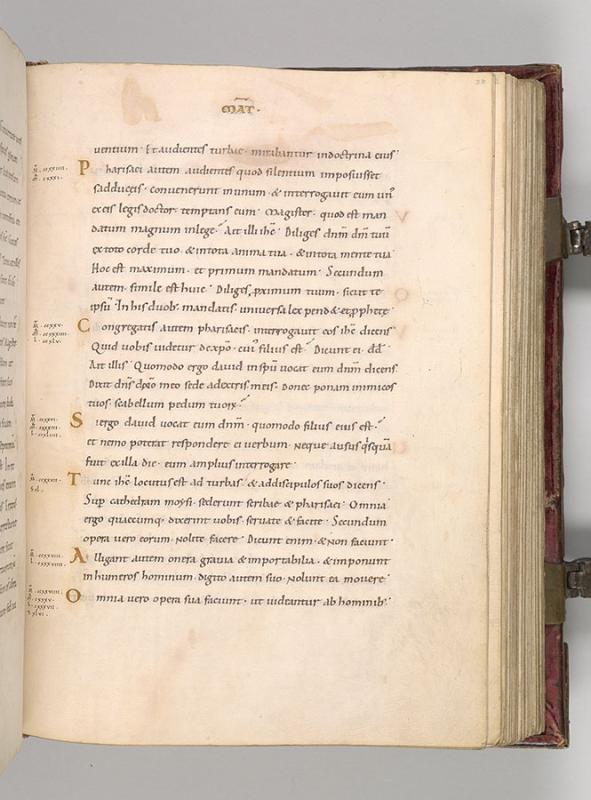 MAT·
uentium· Et audientes turbae· mirabantur indoctrina eius·
Pharisaei autem audientes quod silentium imposuisset
sadduceis· conuenerunt inunum· & interrogauit eum un'
exeis legisdoctor· temptans eum· Magister· quod est man
datum magnum inlege? Ait illi ihc· Diliges dnm dm tuu
extoto corde tuo· & intota anima tua· & intota mente tua·
Hoc est maximum· et primum mandatum· Secundum
autem· simile est huic· Diliges pximum tuum· sicut te
ipsu· In his duob; mandatis uniuersa lex pend& & pphete·
Congregatis autem pharisaeis· interrogauit eos ihc dicens·
Quid uobis uidetur dexpo· cui' filius est? Dicunt ei· dd·
Ait illis· Quomodo ergo dauid inspu uocat eum dnm dicens·
Dixit dns dno meo sede adextris meis· Donec ponam inimicos
tuos· scabellum pedum tuorx·
Si ergo dauid uocat eum dnm· quomodo filius eius est·
et nemo poterat respondere ei uerbum· Neque ausus qsqua
fuit exilla die· eum amplius interrogare·
Tunc ihc locutus est ad turbas· & addiscipulos suos dicens·
Sup cathedram moysi· sederunt scribae & pharisaei· Omnia
ergo quaecumq; dixerint uobis· seruate & facite· Secundum
opera uero eorum· Nolite facere· Dicunt enim· & Non faciunt·
Alligant autem onera grauia & importabilia· & imponunt
inhumeros hominum· digito autem suo· Nolunt ea mouere·
Omnia uero opera sua faciunt· ut uideantur ab hominib;